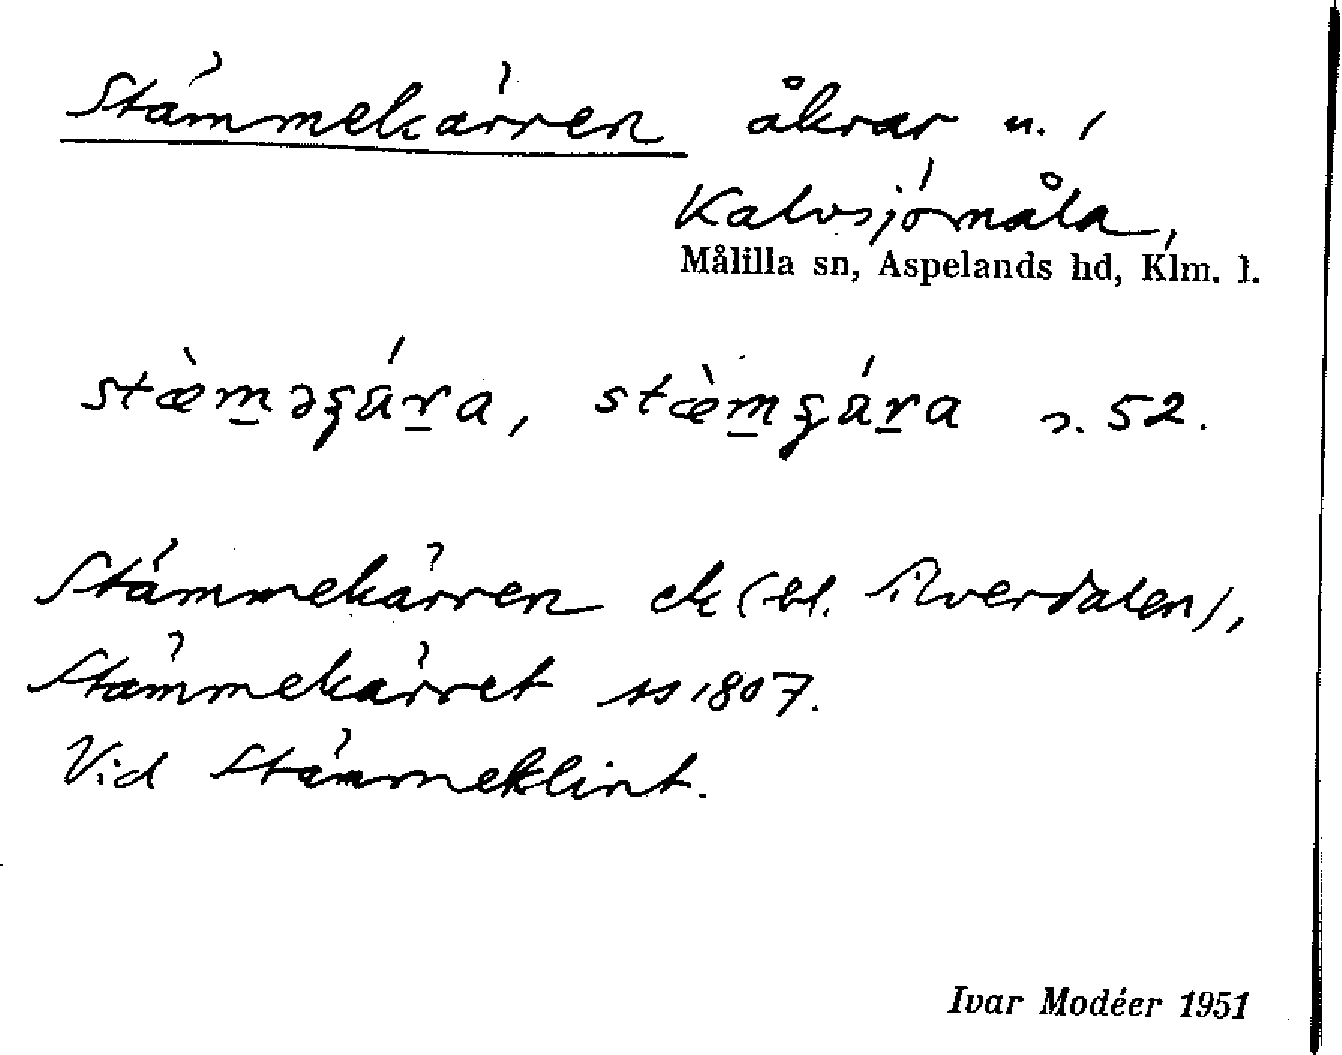 Stämmekärren åkrar u. /
Kalvsjömåla,
Målilla sn, Aspelands hd, Klm. l.
stæ̀m̲əʂá́r̲a, stæ̀m̲ʂár̲a s. 52.
Stämmekärren ek (bl. Kverdalen),
Stämmekärret ss 1807.
Vid Stämmeklint.
Ivar Modéer 1951